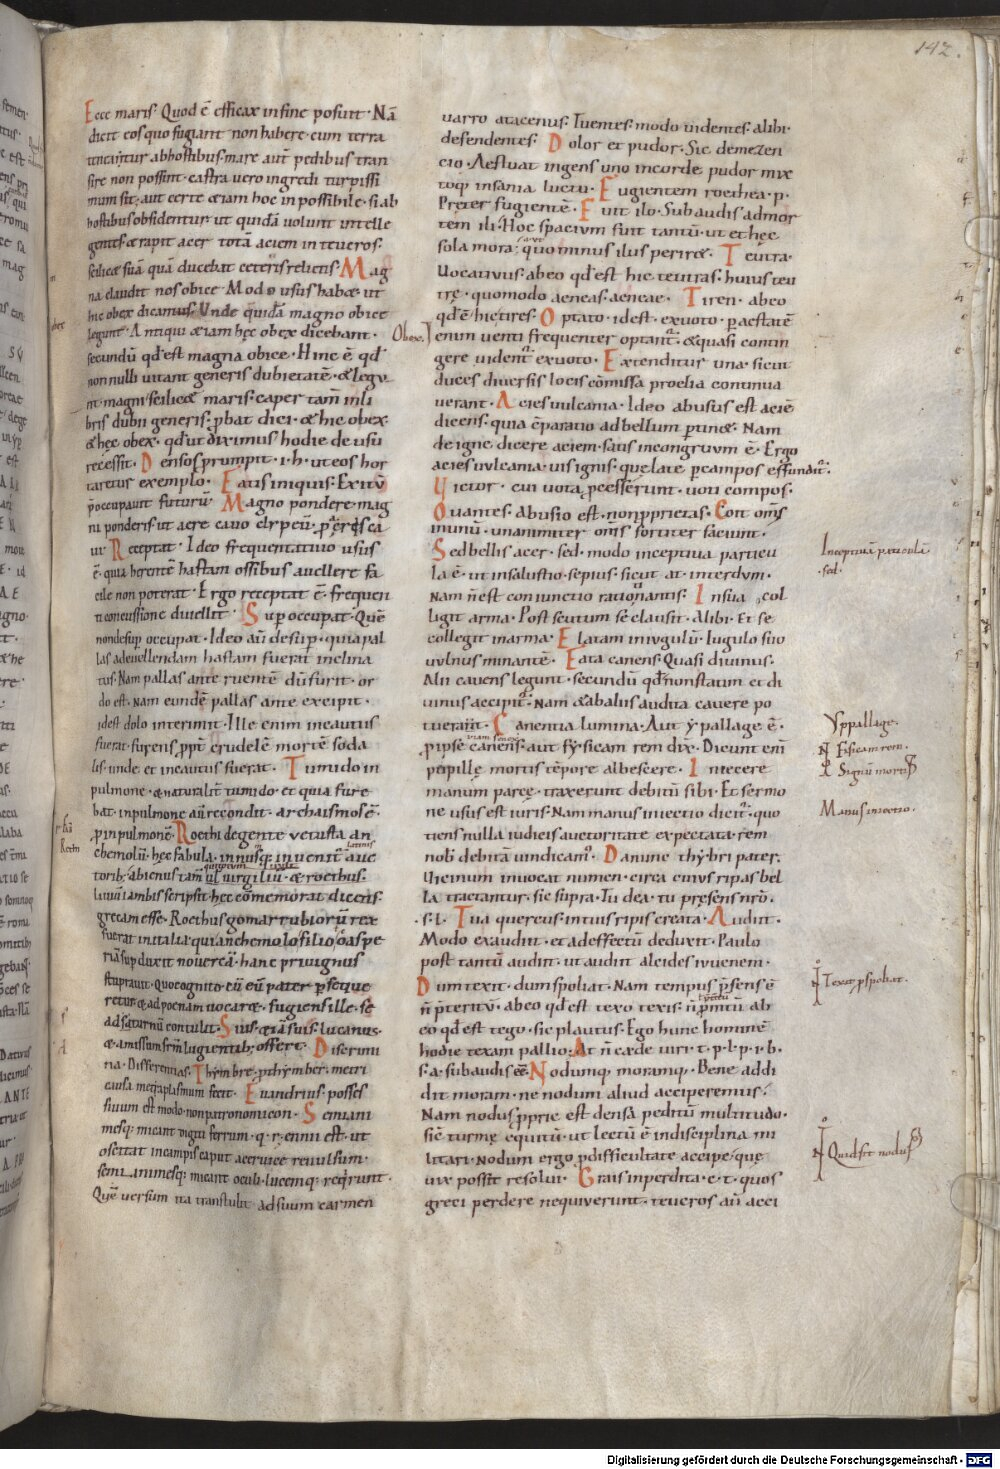 142.
Ecce maris. Quod ē efficax in fine posuit. Nā
dicit eos quo fugiant non habere. cum terra
teneantur ab hostibus. mare aut pedibus tran
sire non possint. castra uero ingredi turpissi
mum sit. aut certe etiam hoc inpossibile. si ab
hostibus obsidentur ut quidā uolunt intelle
gentes. & rapit acer totā aciem in teucros.
scilicet suā quā ducebat ceteris relictis. Mag
na claudit nos obice. Modo usus habet ut
hic obex dicamus. Unde quidā magno obice
legunt. Antiqui etiam hęc obex dicebant.
secundū qd est magna obice. Hinc ē qd
nonnulli uitant generis dubietatē. & legu
nt. magni scilicet maris. caper tam in li
bris dubii generis. pbat dici. & hic obex.
& hęc obex. qd ut diximus hodie de usu
recessit. Densos prumpit. i. h. ut eos hor
taretur exemplo. Fatis iniquis. Exitū
poccupauit futurū. Magno pondere. mag
ni ponderis. ut aere cauo clypeū.
Receptat. Ideo frequentatiuo usus
ē. quia herentē hastam ossibus auellere fa
cile non poterat. Ergo receptat ē. frequen
ti concussione diuellit. Sup occupat. Quē
non desup occupat. Ideo aū desup. quia pal
las ad euellendam hastam fuerat inclina
tus. Nam pallas ante ruentē dū furit. or
do est. Nam eundē pallas ante excipit.
id est dolo interimit. Ille enim incautus
fuerat. furens ppt crudelē mortē soda
lis. unde et incautus fuerat. Tumido in
pulmone. & naturalit tumido. et quia fure
bat. in pulmone aū recondit. archaismos ē.
p in pulmonē. Roethi de gente uetusta an
chemolū. hęc fabula. in nusq; inuenit auc
latinis
torib; abienus tam qui totum ul uirgiliū. & roethus.
liuiū iambis scripsit hęc cōmemorat dicens.
grecam esse. Roethus gomarrubiorū rex
fuerat in italia. qui anchemolo filio. aspe
riā supduxit nouercā. hanc priuignus
stuprauit. quo cognito cū eū pater pseque
retur. & ad pœnam uocaret. fugiens ille. se
ad saturnū contulit. Suis. & iā suis. lucanus.
& amissum frm lugentib; offert. Discrimi
na. Differentias. Thymbre. p thymber. metri
causa metaplasmum fecit. Euandrius. posses
siuum est modo. non patronomicon. Semiani
mesq; micant digiti ferrum. q. r. ennii est. ut
oscitat in campis caput a ceruice reuulsum.
semianimesq; micant oculi. lucemq; reqrunt.
Quē uersum ita transtulit ad suum carmen
Obex.
uarro atacenus. Tuentes. modo uidentes. alibi.
defendentes. Dolor et pudor. Sic de mezen
cio. Aestuat ingens uno in corde pudor mix
toq; insania luctu. Fugientem roethea. p.
Preter fugientē. Fuit ilo. Subaudis ad mor
tem ili. Hoc spacium fuit tantū. ut et hęc
sola mora. quominus ilus periret. Teutra.
Uocatiuus. ab eo qd est hic teutras. huius teu
trę. quomodo aeneas. aeneae. Tiren. ab eo
qd ē hic tires. Optato. id est. ex uoto. p aestatē
enim uenti frequenter optant. & quasi contin
gere uident ex uoto. Extenditur una. sicut
duces diuersis locis cōmissa proelia continua
uerant. Acies uulcania. Ideo abusus est aciē
dicens. quia cōparatio ad bellum ptinet. Nam
de igne dicere aciem. satis incongruum ē. Ergo
acies uulcania. uis ignis. que late p campos effundit.
Uictor. cui uota pcesserunt. uoti compos.
Ouantes. abusio est. non pprietas. Coit oms
in unū. unanimiter oms fortiter faciunt.
Sed bellis acer. sed. modo inceptiua particu
la ē. ut in salustio. sepius. sicut at. interdum.
Nam n̄ est coniunctio rationantis. In sua col
ligit arma. Post scutum se clausit. alibi. Et se
collegit in arma. Elatam in iugulū. Iugulo suo
uulnus minantē. Fata canens. Quasi diuinus.
Alii cauens legunt. secundū qd non statim et di
uinus accipit. Nam & ab aliis audita cauere po
tuerant. Canentia lumina. Aut yppallage ē.
p ipse caniens. aut fysicam rem dixit. Dicunt eni
pupille mortis tēpore albescere. Iniecere
manum parcę. traxerunt debitū sibi. Et sermo
ne usus est iuris. Nam manus iniectio dicit. quo
tiens nulla iudicis auctoritate expectata. rem
nob debitā uindicam. Da nunc thybri pater.
Uicinum inuocat numen. circa cuius ripas bel
la tractantur. sic supra. Tu dea. tu presens nrō.
s. l. Tua quercus. in tuis ripis creata. Audiit.
Modo exaudiit. et ad effectū deduxit. Paulo
post tantū audiit. ut audiit alcides iuuenem.
Dum texit. dum spoliat. Nam tempus psens ē
n̄ pteritū. ab eo qd est texo texis. n̄ pmitū ab
eo qd est tego. sic plautus. Ego hunc hominē
hodie texam pallio. At n̄ cæde uiri. t. p. l. p. i. b.
s. a. subaudis eē. Nodumq; moramq;. Bene addi
dit moram. ne nodum aliud acciperemus.
Nam nodus pprie est densa peditū multitudo.
sic turmę equitū. ut lectū ē in disciplina mi
litari. Nodum ergo p difficultate accipe. quę
uix possit resolui. Grais inperdita. c. t. quos
greci perdere nequiuerunt. teucros aū acci
Inceptiua particula
.sed.
Yppallage.
Fisicam rem.
Signū mortis
Manus iniectio.
Texit p spoliat.
Quid sit nodus
Digitalisierung gefördert durch die Deutsche Forschungsgemeinschaft - DFG